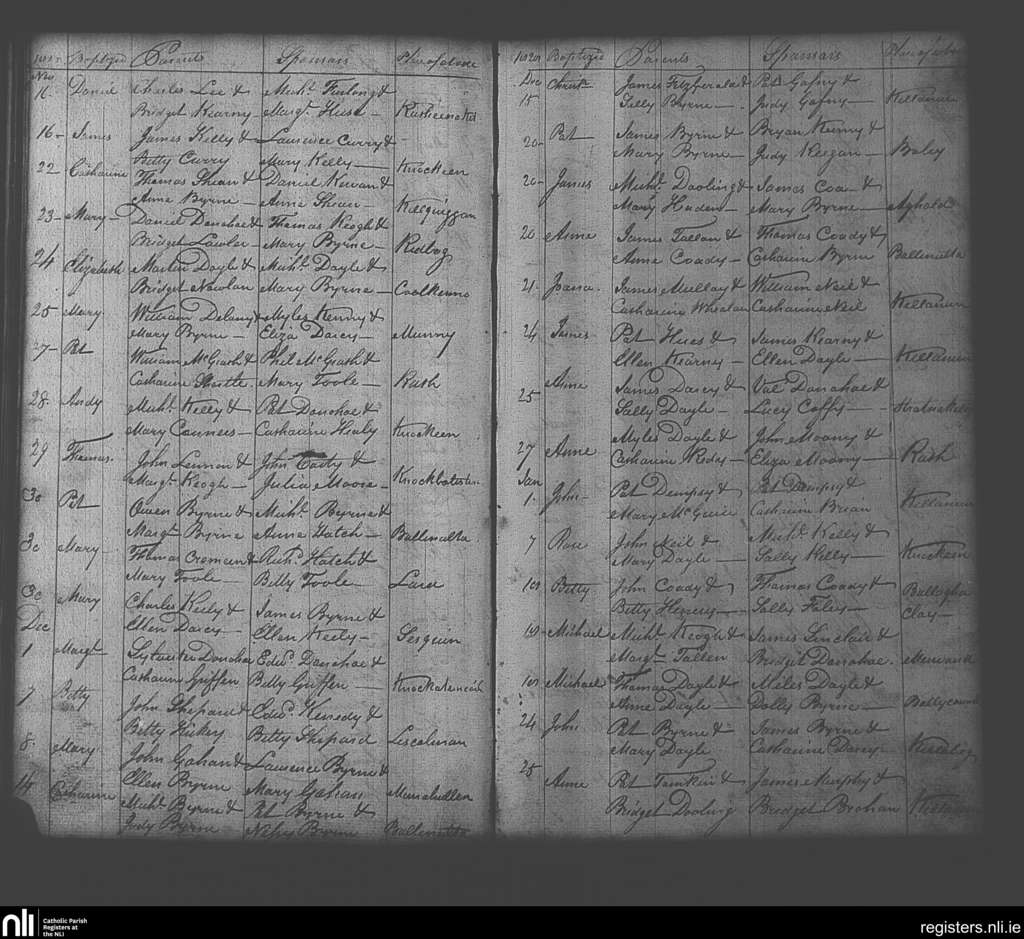 Baptized Parents Sponsors Place of abode
Nov
16 Daniel Charles Lee & Michl. Furlong &
Bridget Kearny Margt. Huse
16 James James Kelly & Laurence Curry &
Betty Curry Mary Kelly Knockeen
22 Catharine Thomas Shean & Daniel Kewan &
Anne Byrne Anne Shean
23 Mary Daniel Donohoe & Thomas Keogh &
Bridget Lawler Mary Byrne Redbog
24 Elizabeth Martin Doyle & Michl. Doyle &
Bridget Nowlan Mary Byrne Coolkenno
25 Mary William Delany & Myles Kenny &
Mary Byrne Eliza Darcy Munny
27 Pat William McGrath & Phil McGrath &
Catharine Mary Toole Rath
28 Andy Michl. Kelly & Pat Donohoe &
Mary Conners Catharine Healy Knockeen
29 Thomas John Lennon & John &
Margt. Keogh Julia Moore
30 Pat Owen Byrne & Michl. Byrne &
Margt. Byrne Anne Hatch Ballinulta
30 Mary Thomas & Hatch &
Mary Toole Betty Toole
30 Mary Charles Keely & James Byrne &
Ellen Darcy Ellen Keely
Dec
1 Margt. Donohoe Edwd. Donohoe &
Catharine Griffen Betty Griffen
7 Betty John Shepard & Edwd. Kenedy &
Betty Hickey Betty Shepard Liscolman
8 Mary John Gahan & Laurence Byrne &
Ellen Byrne Mary Gahan
14 Catharine Michl. Byrne & Pat Byrne &
Judy Byrne Byrne Ballinulta
Baptized Parents Sponsors Place of abode
Dec
15 Christ. James Fitzgerald & Pat Gafny &
Sally Byrne Judy Gafny
20 Pat James Byrne & Bryan Kearny &
Mary Byrne Judy Keegan Boley
20 James Michl. Dooling & James Coa &
Mary Haden Mary Byrne Aghold
20 Anne James Tallon & Thomas Coady &
Anne Coady Catharine Byrne Ballinulta
21 James Mullay & William Neil &
Catharine Whealan Catharine Neil
24 James Pat Hues & James Kearny &
Ellen Kearny Ellen Doyle
25 Anne James Darcy & Val Donohoe &
Sally Doyle Lucy Coffy
27 Anne Myles Doyle & John Moony &
Catharine Rody Eliza Moony Rath
Jan
1 John Pat Dempsy & Pat Dempsy &
Mary McGuire Catharine Brien
7 Rose John Neil & Michl. Kelly &
Mary Doyle Sally Kelly Knockeen
10 Betty John Coady & Thomas Coady &
Betty Sally Foley
Clay
10 Michael Michl. Keogh & James Sinclair &
Margt. Tallen Bridget Donohoe
10 Michael Thomas Doyle & Miles Doyle &
Anne Doyle Dolly Byrne
24 John Pat Byrne & James Byrne &
Mary Doyle Catharine Darcy
25 Anne Pat Tomkin & James Murphy &
Bridget Dooling Bridget Brohan
nli Catholic Parish
Registers at
the NLI
registers.nli.ie